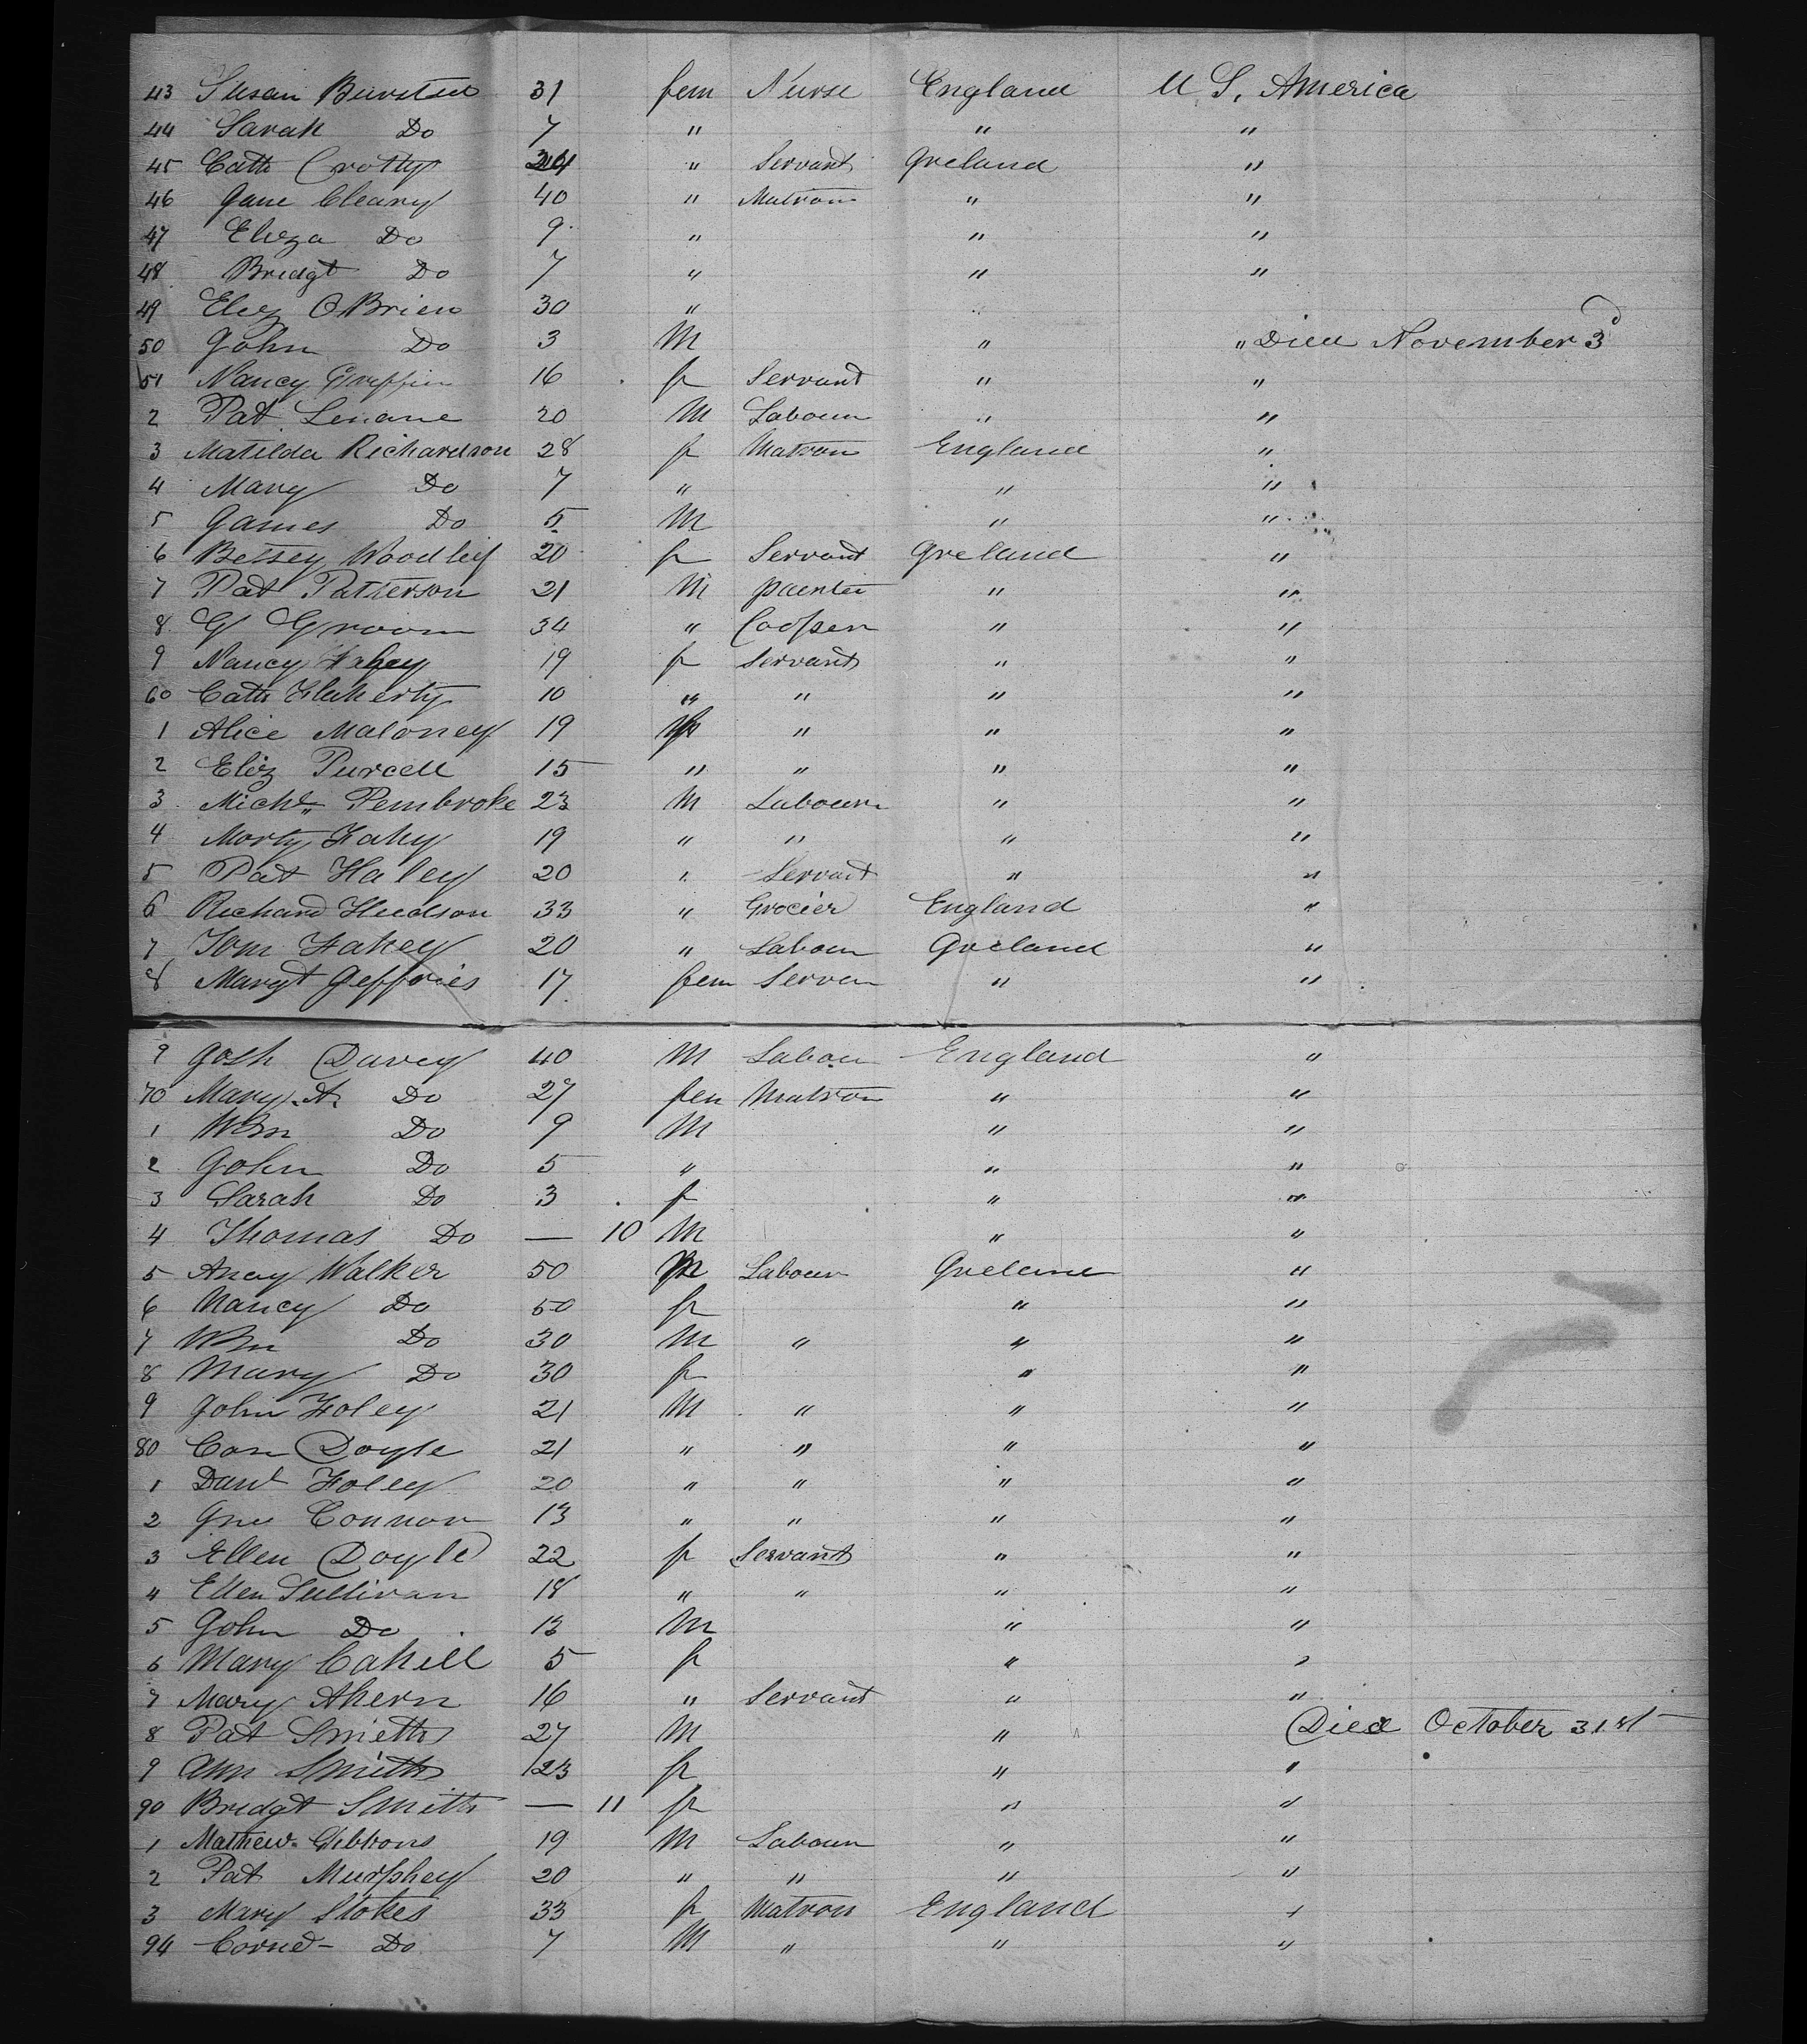 43 Susan 31 fem Nurse England U S, America
44 Sarah Do 7 " " "
45 Cath Crotty " Servant Ireland "
46 Jane Cleary 40 " Matron " "
47 Eliza Do 9 " " "
48 Bridgt Do 7 " " "
49 Eliz OBrien 30 "
50 John Do 3 M " " Died November 3d
51 Nancy Griffin 16 f Servant " "
2 Pat Lenane 20 M Labour " "
3 Matilda Richardson 28 f Matron England "
4 Mary Do 7 " " "
5 James Do 5 M " "
6 Betsey Woodley 20 f Servant Ireland "
7 Pat Patterson 21 M painter " "
8 G Groom 34 " Cooper " "
9 Nancy Fahey 19 f Servant " "
60 Cath Flaherty 10 " " " "
1 Alice Maloney 19 f " " "
2 Eliz Purcell 15 " " " "
3 Michl Pembroke 23 M Labour " "
4 Morty Fahy 19 " " " "
5 Pat Haley 20 " Servant " "
6 Richard Hudson 33 " Grocier England "
7 Tom Fahey 20 " Labour Ireland "
8 Margt Jeffries 17 fem Servan " "
9 Josh Davey 40 M Labou England "
70 Mary A. Do 27 fem Matron " "
1 Wm Do 9 M " "
2 John Do 5 " " "
3 Sarah Do 3 f " "
4 Thomas Do — 10 M " "
5 Walker 50 M Labour Ireland "
6 Nancy Do 50 f " "
7 Wm Do 30 M " " "
8 Mary Do 30 f " "
9 John Foley 21 M " " "
80 Con Doyle 21 " " " "
1 Danl Foley 20 " " " "
2 Jno Connor 13 " " " "
3 Ellen Doyle 22 f Servant " "
4 Ellen Sullivan 18 " " " "
5 John Do 13 M " "
6 Mary Cahill 5 f " "
7 Mary Ahern 16 " Servant " "
8 Pat Smith 27 M " Died October 31st
9 Ann Smith 23 f " "
90 Bridgt Smith — 11 f " "
1 Mathew Gibbons 19 M Labour " "
2 Pat Murphey 20 " " " "
3 Mary Stokes 33 f Matron England "
94 Do 7 M " " "